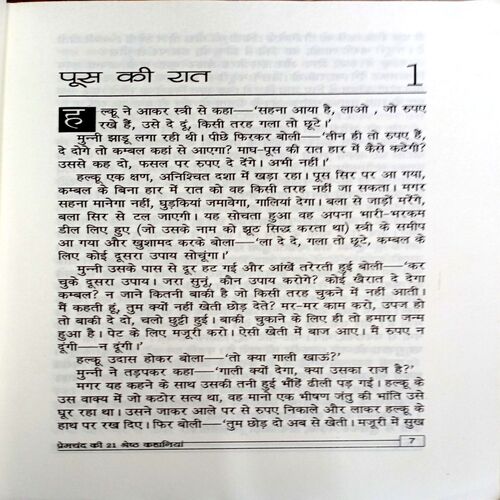 पूस की रात 1
हल्कू ने आकर स्त्री से कहा—‘सहना आया है, लाओ , जो रुपए
रखे हैं, उसे दे दूं, किसी तरह गला तो छूटे।’
मुन्नी झाडू लगा रही थी। पीछे फिरकर बोली—‘तीन ही तो रुपए हैं,
दे दोगे तो कम्बल कहां से आएगा? माघ-पूस की रात हार में कैसे कटेगी?
उससे कह दो, फसल पर रुपए दे देंगे। अभी नहीं।’
हल्कू एक क्षण, अनिश्चित दशा में खड़ा रहा। पूस सिर पर आ गया,
कम्बल के बिना हार में रात को वह किसी तरह नहीं जा सकता। मगर
सहना मानेगा नहीं, घुड़कियां जमावेगा, गालियां देगा। बला से जाड़ों मरेंगे,
बला सिर से टल जाएगी। यह सोचता हुआ वह अपना भारी-भरकम
डील लिए हुए (जो उसके नाम को झूठ सिद्ध करता था) स्त्री के समीप
आ गया और खुशामद करके बोला—‘ला दे दे, गला तो छूटे, कम्बल के
लिए कोई दूसरा उपाय सोचूंगा।’
मुन्नी उसके पास से दूर हट गई और आंखें तरेरती हुई बोली—‘कर
चुके दूसरा उपाय। जरा सुनूं, कौन उपाय करोगे? कोई खैरात दे देगा
कम्बल? न जाने कितनी बाकी है जो किसी तरह चुकने में नहीं आती।
मैं कहती हूं, तुम क्यों नहीं खेती छोड़ देते? मर-मर काम करो, उपज हो
तो बाकी दे दो, चलो छुट्टी हुई। बाकी चुकाने के लिए ही तो हमारा जन्म
हुआ है। पेट के लिए मजूरी करो। ऐसी खेती में बाज आए। मैं रुपए न
दूंगी—न दूंगी।’
हल्कू उदास होकर बोला—‘तो क्या गाली खाऊं?’
मुन्नी ने तड़पकर कहा—‘गाली क्यों देगा, क्या उसका राज है?’
मगर यह कहने के साथ उसकी तनी हुई भौंहें ढीली पड़ गईं। हल्कू के
उस वाक्य में जो कठोर सत्य था, वह मानो एक भीषण जंतु की भांति उसे
घूर रहा था। उसने जाकर आले पर से रुपए निकाले और लाकर हल्कू के
हाथ पर रख दिए। फिर बोली—‘तुम छोड़ दो अब से खेती। मजूरी में सुख
प्रेमचंद की 21 श्रेष्ठ कहानियां 7